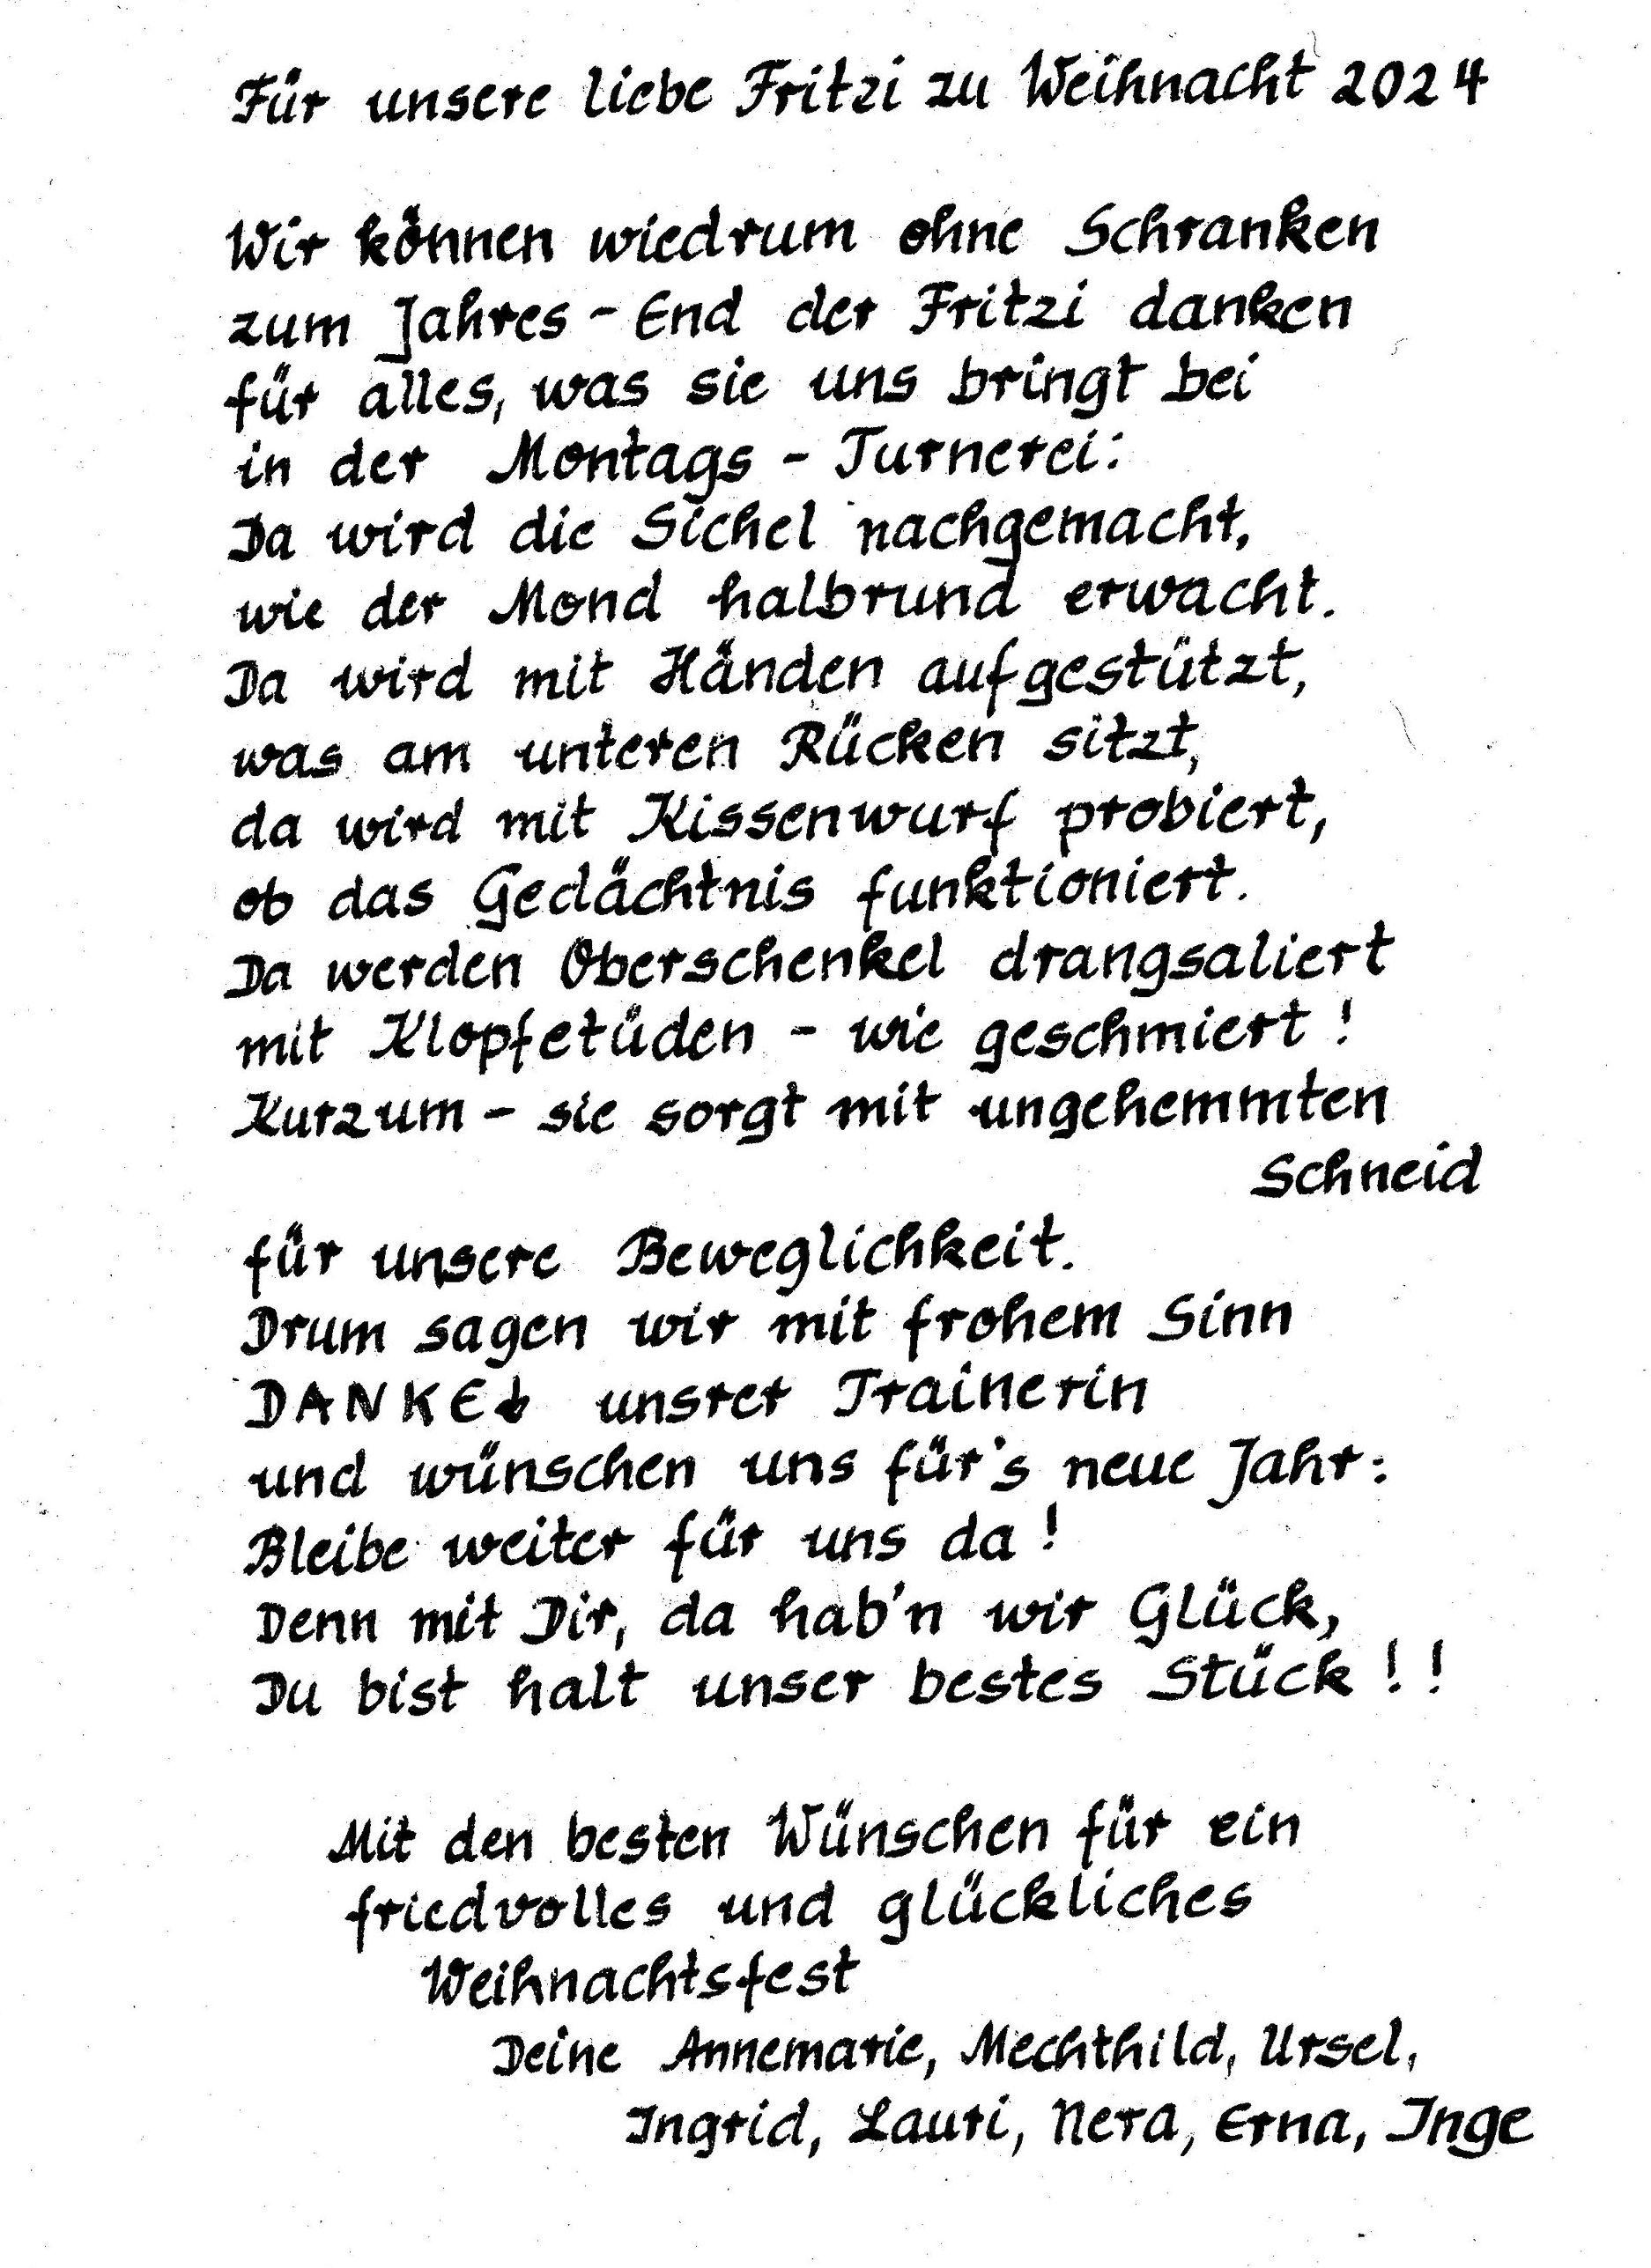 Für unsere liebe Fritzi zu Weihnacht 2024
Wir können wiedrum ohne Schranken
zum Jahres - End der Fritzi danken
für alles, was sie uns bringt bei
in der Montags - Turnerei:
Da wird die Sichel nachgemacht,
wie der Mond halbrund erwacht.
Da wird mit Händen aufgestützt,
was am unteren Rücken sitzt,
da wird mit Kissenwurf probiert,
ob das Gedächtnis funktioniert.
Da werden Oberschenkel drangsaliert
mit Klopfetüden - wie geschmiert !
Kurzum - sie sorgt mit ungehemmten
Schneid
für unsere Beweglichkeit.
Drum sagen wir mit frohem Sinn
DANKE unsrer Trainerin
und wünschen uns für's neue Jahr:
Bleibe weiter für uns da !
Denn mit Dir, da hab'n wir Glück,
Du bist halt unser bestes Stück ! !
Mit den besten Wünschen für ein
friedvolles und glückliches
Weihnachtsfest
Deine Annemarie, Mechthild, Ursel,
Ingrid, Lauri, Nera, Erna, Inge